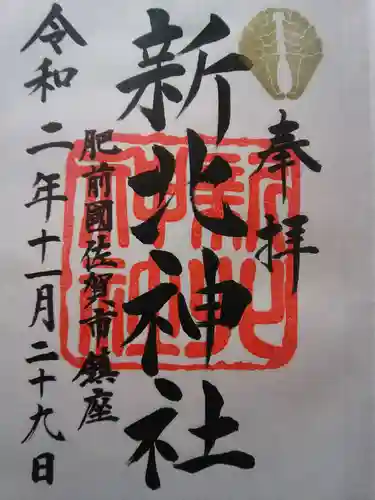 奉拝
新北神社
肥前國佐賀市鎮座
令和二年十一月二十九日
新北
神社